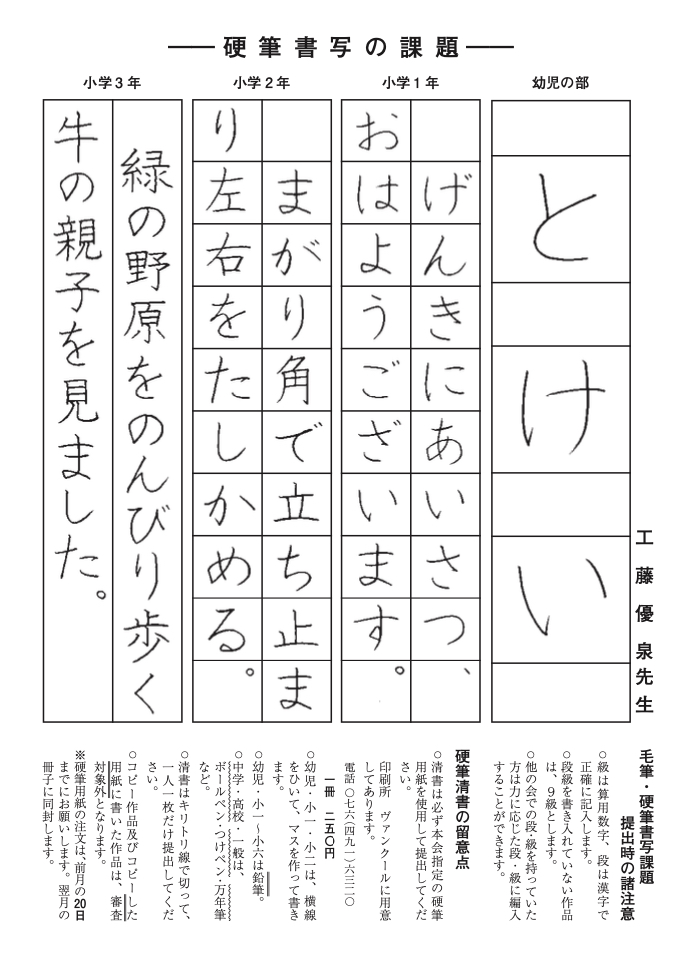 硬筆書写の課題
幼児の部
とけい
小学1年
げんきにあいさつ、
おはようございます。
小学2年
まがり角で立ち止ま
り左右をたしかめる。
小学3年
緑の野原をのんびり歩く
牛の親子を見ました。
工藤優泉先生
毛筆・硬筆書写課題
提出時の諸注意
○級は算用数字、段は漢字で
正確に記入します。
○段級を書き入れていない作品
は、9級とします。
○他の会での段・級を持っていた
方は力に応じた段・級に編入
することができます。
硬筆清書の留意点
○清書は必ず本会指定の硬筆
用紙を使用して提出してくだ
さい。
印刷所 ヴァンクールに用意
してあります。
電話〇七六(四九一)六三二〇
一冊 二五〇円
○幼児・小一・小二は、横線
をひいて、マスを作って書き
ます。
○幼児・小一～小六は鉛筆。
○中学・高校・一般は、
ボールペン・つけペン・万年筆
など。
○清書はキリトリ線で切って、
一人一枚だけ提出してくだ
さい。
○コピー作品及びコピーした
用紙に書いた作品は、審査
対象外となります。
※硬筆用紙の注文は、前月の20日
までにお願いします。翌月の
冊子に同封します。